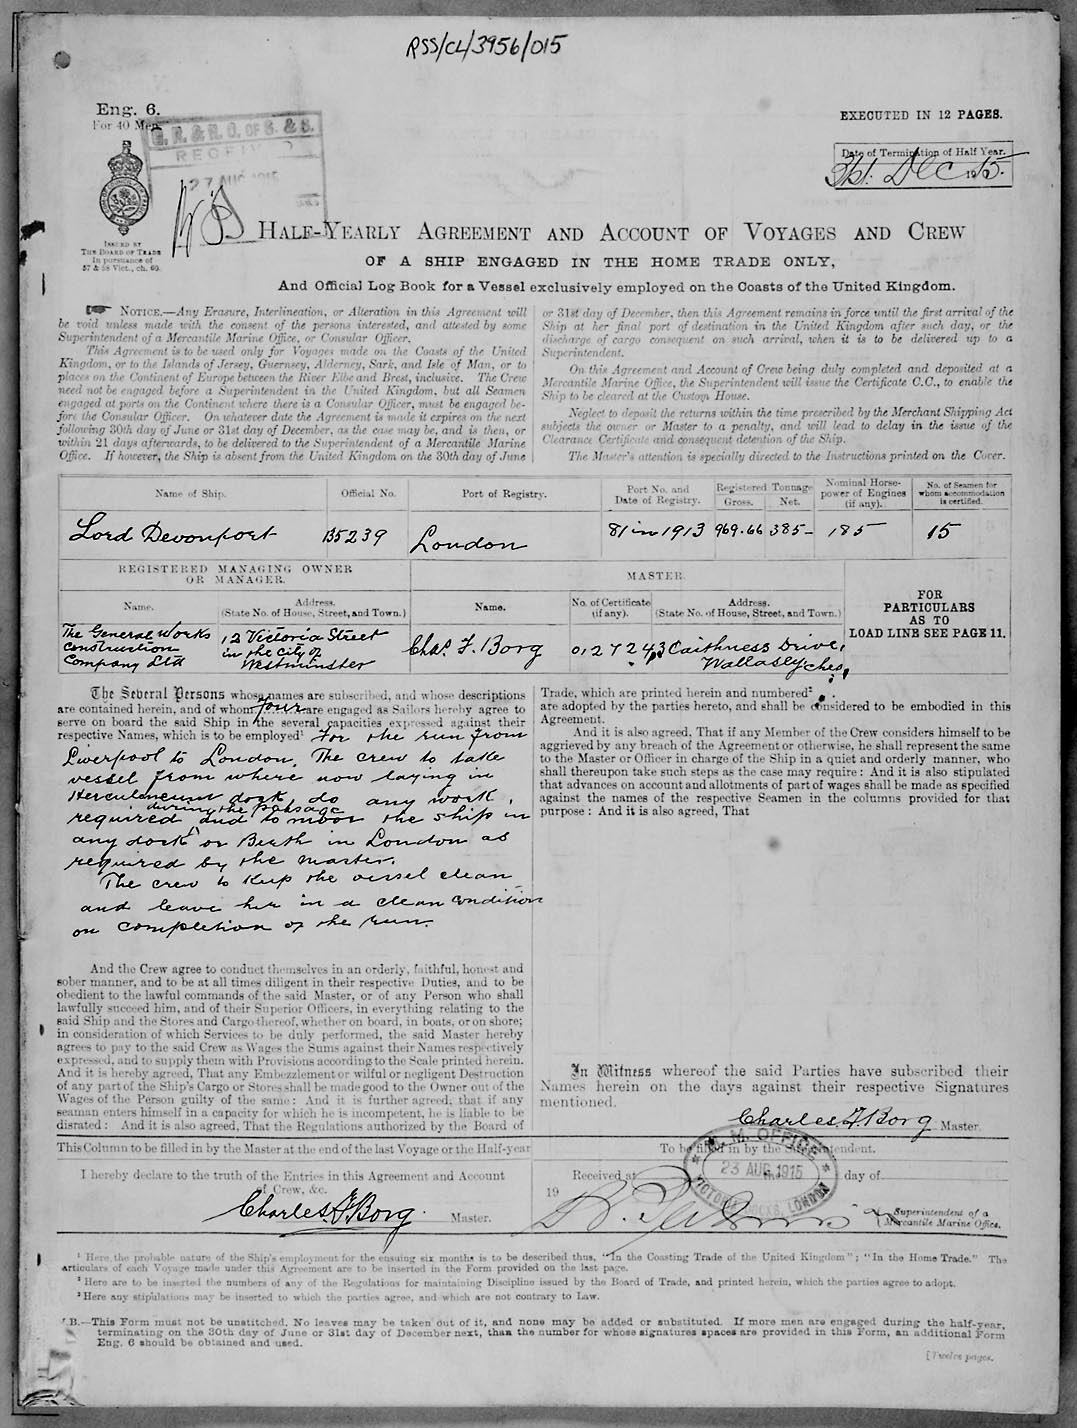 RSS/CL/3956/015
Eng. 6.
For 40 Men.
EXECUTED IN 12 PAGES.
G. R. & R. O. OF S. & S.
RECEIVED
27 AUG 1915
Date of Termination of Half Year.
31st. Dec 1915.
ISSUED BY
THE BOARD OF TRADE
In pursuance of
57 & 58 Vict., ch. 60.
HALF-YEARLY AGREEMENT AND ACCOUNT OF VOYAGES AND CREW
OF A SHIP ENGAGED IN THE HOME TRADE ONLY,
And Official Log Book for a Vessel exclusively employed on the Coasts of the United Kingdom.
NOTICE.—Any Erasure, Interlineation, or Alteration in this Agreement will
be void unless made with the consent of the persons interested, and attested by some
Superintendent of a Mercantile Marine Office, or Consular Officer.
This Agreement is to be used only for Voyages made on the Coasts of the United
Kingdom, or to the Islands of Jersey, Guernsey, Alderney, Sark, and Isle of Man, or to
places on the Continent of Europe between the River Elbe and Brest, inclusive. The Crew
need not be engaged before a Superintendent in the United Kingdom, but all Seamen
engaged at ports on the Continent where there is a Consular Officer, must be engaged be-
fore the Consular Officer. On whatever date the Agreement is made it expires on the next
following 30th day of June or 31st day of December, as the case may be, and is then, or
within 21 days afterwards, to be delivered to the Superintendent of a Mercantile Marine
Office. If however, the Ship is absent from the United Kingdom on the 30th day of June
or 31st day of December, then this Agreement remains in force until the first arrival of the
Ship at her final port of destination in the United Kingdom after such day, or the
discharge of cargo consequent on such arrival, when it is to be delivered up to a
Superintendent.
On this Agreement and Account of Crew being duly completed and deposited at a
Mercantile Marine Office, the Superintendent will issue the Certificate C.C., to enable the
Ship to be cleared at the Custom House.
Neglect to deposit the returns within the time prescribed by the Merchant Shipping Act
subjects the owner or Master to a penalty, and will lead to delay in the issue of the
Clearance Certificate and consequent detention of the Ship.
The Master's attention is specially directed to the Instructions printed on the Cover.
Name of Ship. Official No. Port of Registry. Port No. and Date of Registry. Registered Tonnage Gross. Net. Nominal Horse-power of Engines (if any). No. of Seamen for whom accommodation is certified.
Lord Devonport 135239 London 81 in 1913 969.66 385- 185 15
REGISTERED MANAGING OWNER
OR MANAGER.
MASTER.
Name. Address. (State No. of House, Street, and Town.) Name. No. of Certificate (if any). Address. (State No. of House, Street, and Town.)
FOR
PARTICULARS
AS TO
LOAD LINE SEE PAGE 11.
The General Works
Construction
Company Ltd
12 Victoria Street
in the City of
Westminster
Chas. F. Borg
012724
43 Caithness Drive,
Wallasey Ches,
The Several Persons whose names are subscribed, and whose descriptions
are contained herein, and of whom four are engaged as Sailors hereby agree to
serve on board the said Ship in the several capacities expressed against their
respective Names, which is to be employed¹ For the run from
Liverpool to London. The crew to take
vessel from where now laying in
Herculaneum dock do any work,
during the passage
required and to moor the ship in
any dock or Berth in London as
required by the master.
The crew to keep the vessel clean
and leave her in a clean condition
on completion of the run.
And the Crew agree to conduct themselves in an orderly, faithful, honest and
sober manner, and to be at all times diligent in their respective Duties, and to be
obedient to the lawful commands of the said Master, or of any Person who shall
lawfully succeed him, and of their Superior Officers, in everything relating to the
said Ship and the Stores and Cargo thereof, whether on board, in boats, or on shore;
in consideration of which Services to be duly performed, the said Master hereby
agrees to pay to the said Crew as Wages the Sums against their Names respectively
expressed, and to supply them with Provisions according to the Scale printed herein.
And it is hereby agreed, That any Embezzlement or wilful or negligent Destruction
of any part of the Ship's Cargo or Stores shall be made good to the Owner out of the
Wages of the Person guilty of the same: And it is further agreed, that if any
seaman enters himself in a capacity for which he is incompetent, he is liable to be
disrated: And it is also agreed, That the Regulations authorized by the Board of
Trade, which are printed herein and numbered²
are adopted by the parties hereto, and shall be considered to be embodied in this
Agreement.
And it is also agreed, That if any Member of the Crew considers himself to be
aggrieved by any breach of the Agreement or otherwise, he shall represent the same
to the Master or Officer in charge of the Ship in a quiet and orderly manner, who
shall thereupon take such steps as the case may require: And it is also stipulated
that advances on account and allotments of part of wages shall be made as specified
against the names of the respective Seamen in the columns provided for that
purpose: And it is also agreed, That
In Witness whereof the said Parties have subscribed their
Names herein on the days against their respective Signatures
mentioned.
Charles F. Borg Master
This Column to be filled in by the Master at the end of the last Voyage or the Half-year
I hereby declare to the truth of the Entries in this Agreement and Account
of Crew, &c.
Charles F Borg. Master.
To be filled in by the Superintendent.
Received at day of
19
M. M. OFFICE
23 AUG 1915
VICTORIA DOCKS, LONDON
Superintendent of a
Mercantile Marine Office.
¹ Here the probable nature of the Ship's employment for the ensuing six months is to be described thus, "In the Coasting Trade of the United Kingdom"; "In the Home Trade." The
articulars of each Voyage made under this Agreement are to be inserted in the Form provided on the last page.
² Here are to be inserted the numbers of any of the Regulations for maintaining Discipline issued by the Board of Trade, and printed herein, which the parties agree to adopt.
³ Here any stipulations may be inserted to which the parties agree, and which are not contrary to Law.
N.B.—This Form must not be unstitched. No leaves may be taken out of it, and none may be added or substituted. If more men are engaged during the half-year,
terminating on the 30th day of June or 31st day of December next, than the number for whose signatures spaces are provided in this Form, an additional Form
Eng. 6 should be obtained and used.
[Twelve pages.